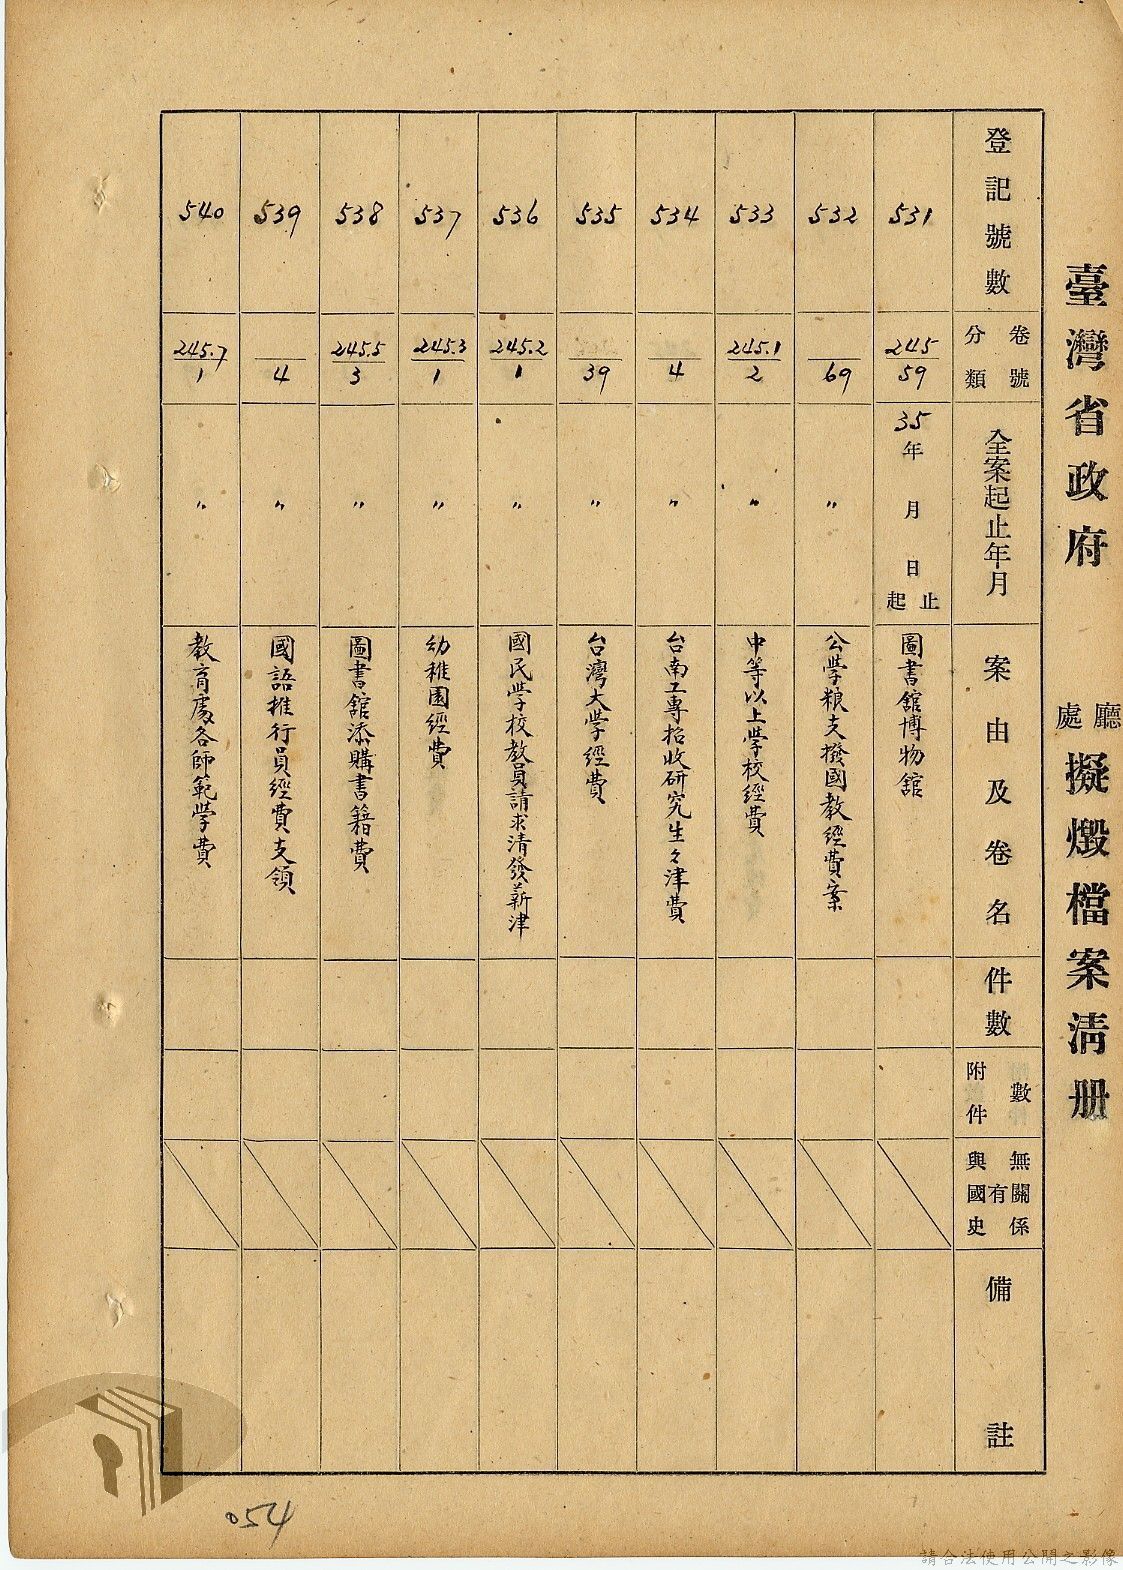 臺灣省政府 廳處 擬燬檔案清册
登記號數
分類 卷號
全案起止年月
案由及卷名
件數
附件 數
與國史 有 無關係
備註
531
245/59
35年 月 日 起止
圖書舘博物舘
532
/69
〃
公學粮支撥國教經費案
533
245.1/2
〃
中等以上学校經費
534
/4
〃
台南工專招收研究生々津費
535
/39
〃
台灣大学經費
536
245.2/1
〃
國民学校教員請求清發薪津
537
245.3/1
〃
幼稚園經費
538
245.5/3
〃
圖書舘添購書籍費
539
/4
〃
國語推行員經費支領
540
245.7/1
〃
教育處各師範学費
054
請合法使用公開之影像